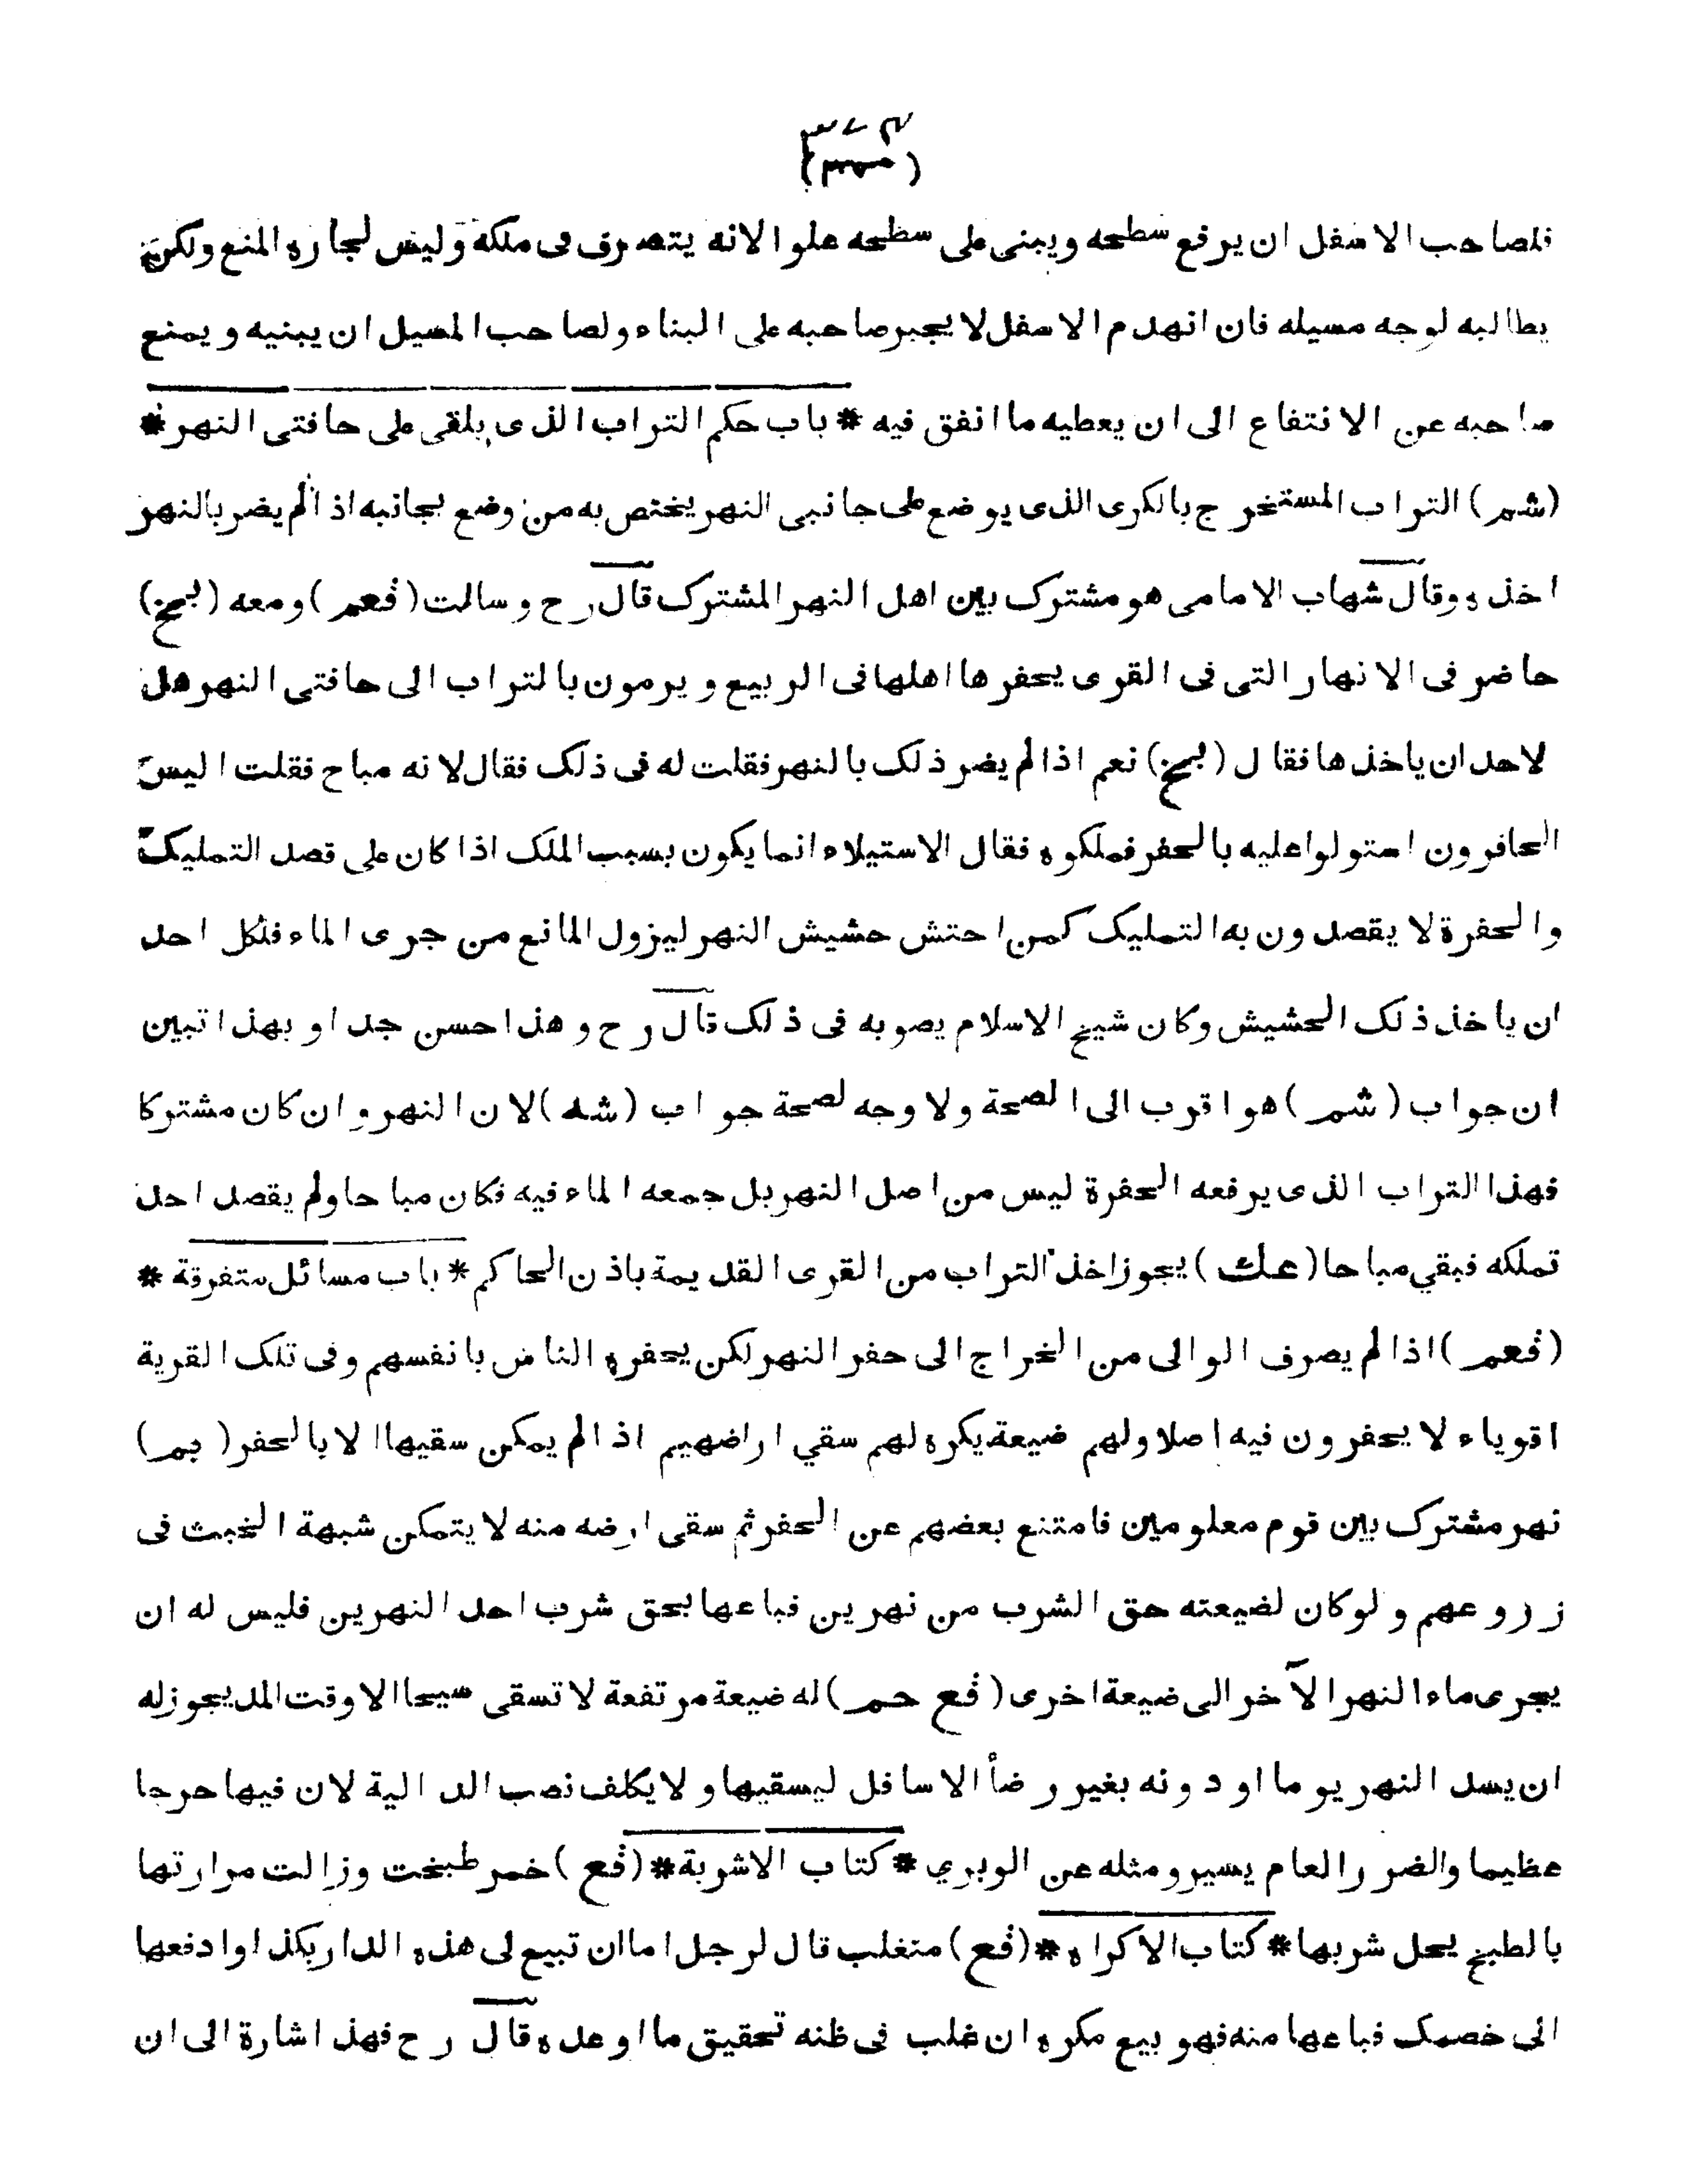 فلصاحب الاسفل ان يرفع سطحه ويبنى على سطحه علوا لانه يتصرف فى ملكه وليس لجاره المنع ولكن
يطالبه لوجه مسيله فان انهدم الاسفل لا يجبر صاحبه على البناء ولصاحب المسيل ان يبنيه ويمنع
صاحبه عن الانتفاع الى ان يعطيه ما انفق فيه * باب حكم التراب الذى يلقى على حافتى النهر *
(شم) التراب المستخرج بالكرى الذى يوضع على جانبى النهر يختص به من وضع بجانبه اذا لم يضر بالنهر
اخذه وقال شهاب الامامى هو مشترك بين اهل النهر المشترك قال رح وسالت (فعم) ومعه (بمخ)
حاضر فى الانهار التى فى القرى يحفرها اهلها فى الربيع ويرمون بالتراب الى حافتى النهر هل
لاحد ان ياخذها فقال (بمخ) نعم اذا لم يضر ذلك بالنهر فقلت له فى ذلك فقال لانه مباح فقلت اليس
الحافرون استولوا عليه بالحفر فملكوه فقال الاستيلاء انما يكون بسبب الملك اذا كان على قصد التمليك
والحفرة لا يقصدون به التمليك كمن احتش حشيش النهر ليزول المانع من جرى الماء فلكل احد
ان ياخذ ذلك الحشيش وكان شيخ الاسلام يصوبه فى ذلك قال رح وهذا حسن جدا وبهذا تبين
ان جواب (شم) هو اقرب الى الصحة ولا وجه لصحة جواب (شه) لان النهر وان كان مشتركا
فهذا التراب الذى يرفعه الحفرة ليس من اصل النهر بل جمعه الماء فيه فكان مباحا ولم يقصد احد
تملكه فبقي مباحا (عك) يجوز اخذ التراب من القرى القديمة باذن الحاكم * باب مسائل متفرقة *
(فعم) اذا لم يصرف الوالى من الخراج الى حفر النهر لكن يحفره الناس بانفسهم وفى تلك القرية
اقوياء لا يحفرون فيه اصلا ولهم ضيعة يكره لهم سقي اراضهيم اذا لم يمكن سقيها الا بالحفر (بم)
نهر مشترك بين قوم معلومين فامتنع بعضهم عن الحفر ثم سقى ارضه منه لا يتمكن شبهة الخبث فى
زروعهم ولو كان لضيعته حق الشرب من نهرين فباعها بحق شرب احد النهرين فليس له ان
يجرى ماء النهر الآخر الى ضيعة اخرى (فع حم) له ضيعة مرتفعة لا تسقى سيحا الا وقت المد يجوز له
ان يسد النهر يوما او دونه بغير رضأ الاسافل ليسقيها ولا يكلف نصب الدالية لان فيها حرجا
عظيما والضرر العام يسير ومثله عن الوبري * كتاب الاشربة * (فع) خمر طبخت وزالت مرارتها
بالطبخ يحل شربها * كتاب الاكراه * (فع) متغلب قال لرجل اما ان تبيع لى هذه الدار بكذا او ادفعها
الى خصمك فباعها منه فهو بيع مكره ان غلب فى ظنه تحقيق ما اوعده قال رح فهذا اشارة الى ان